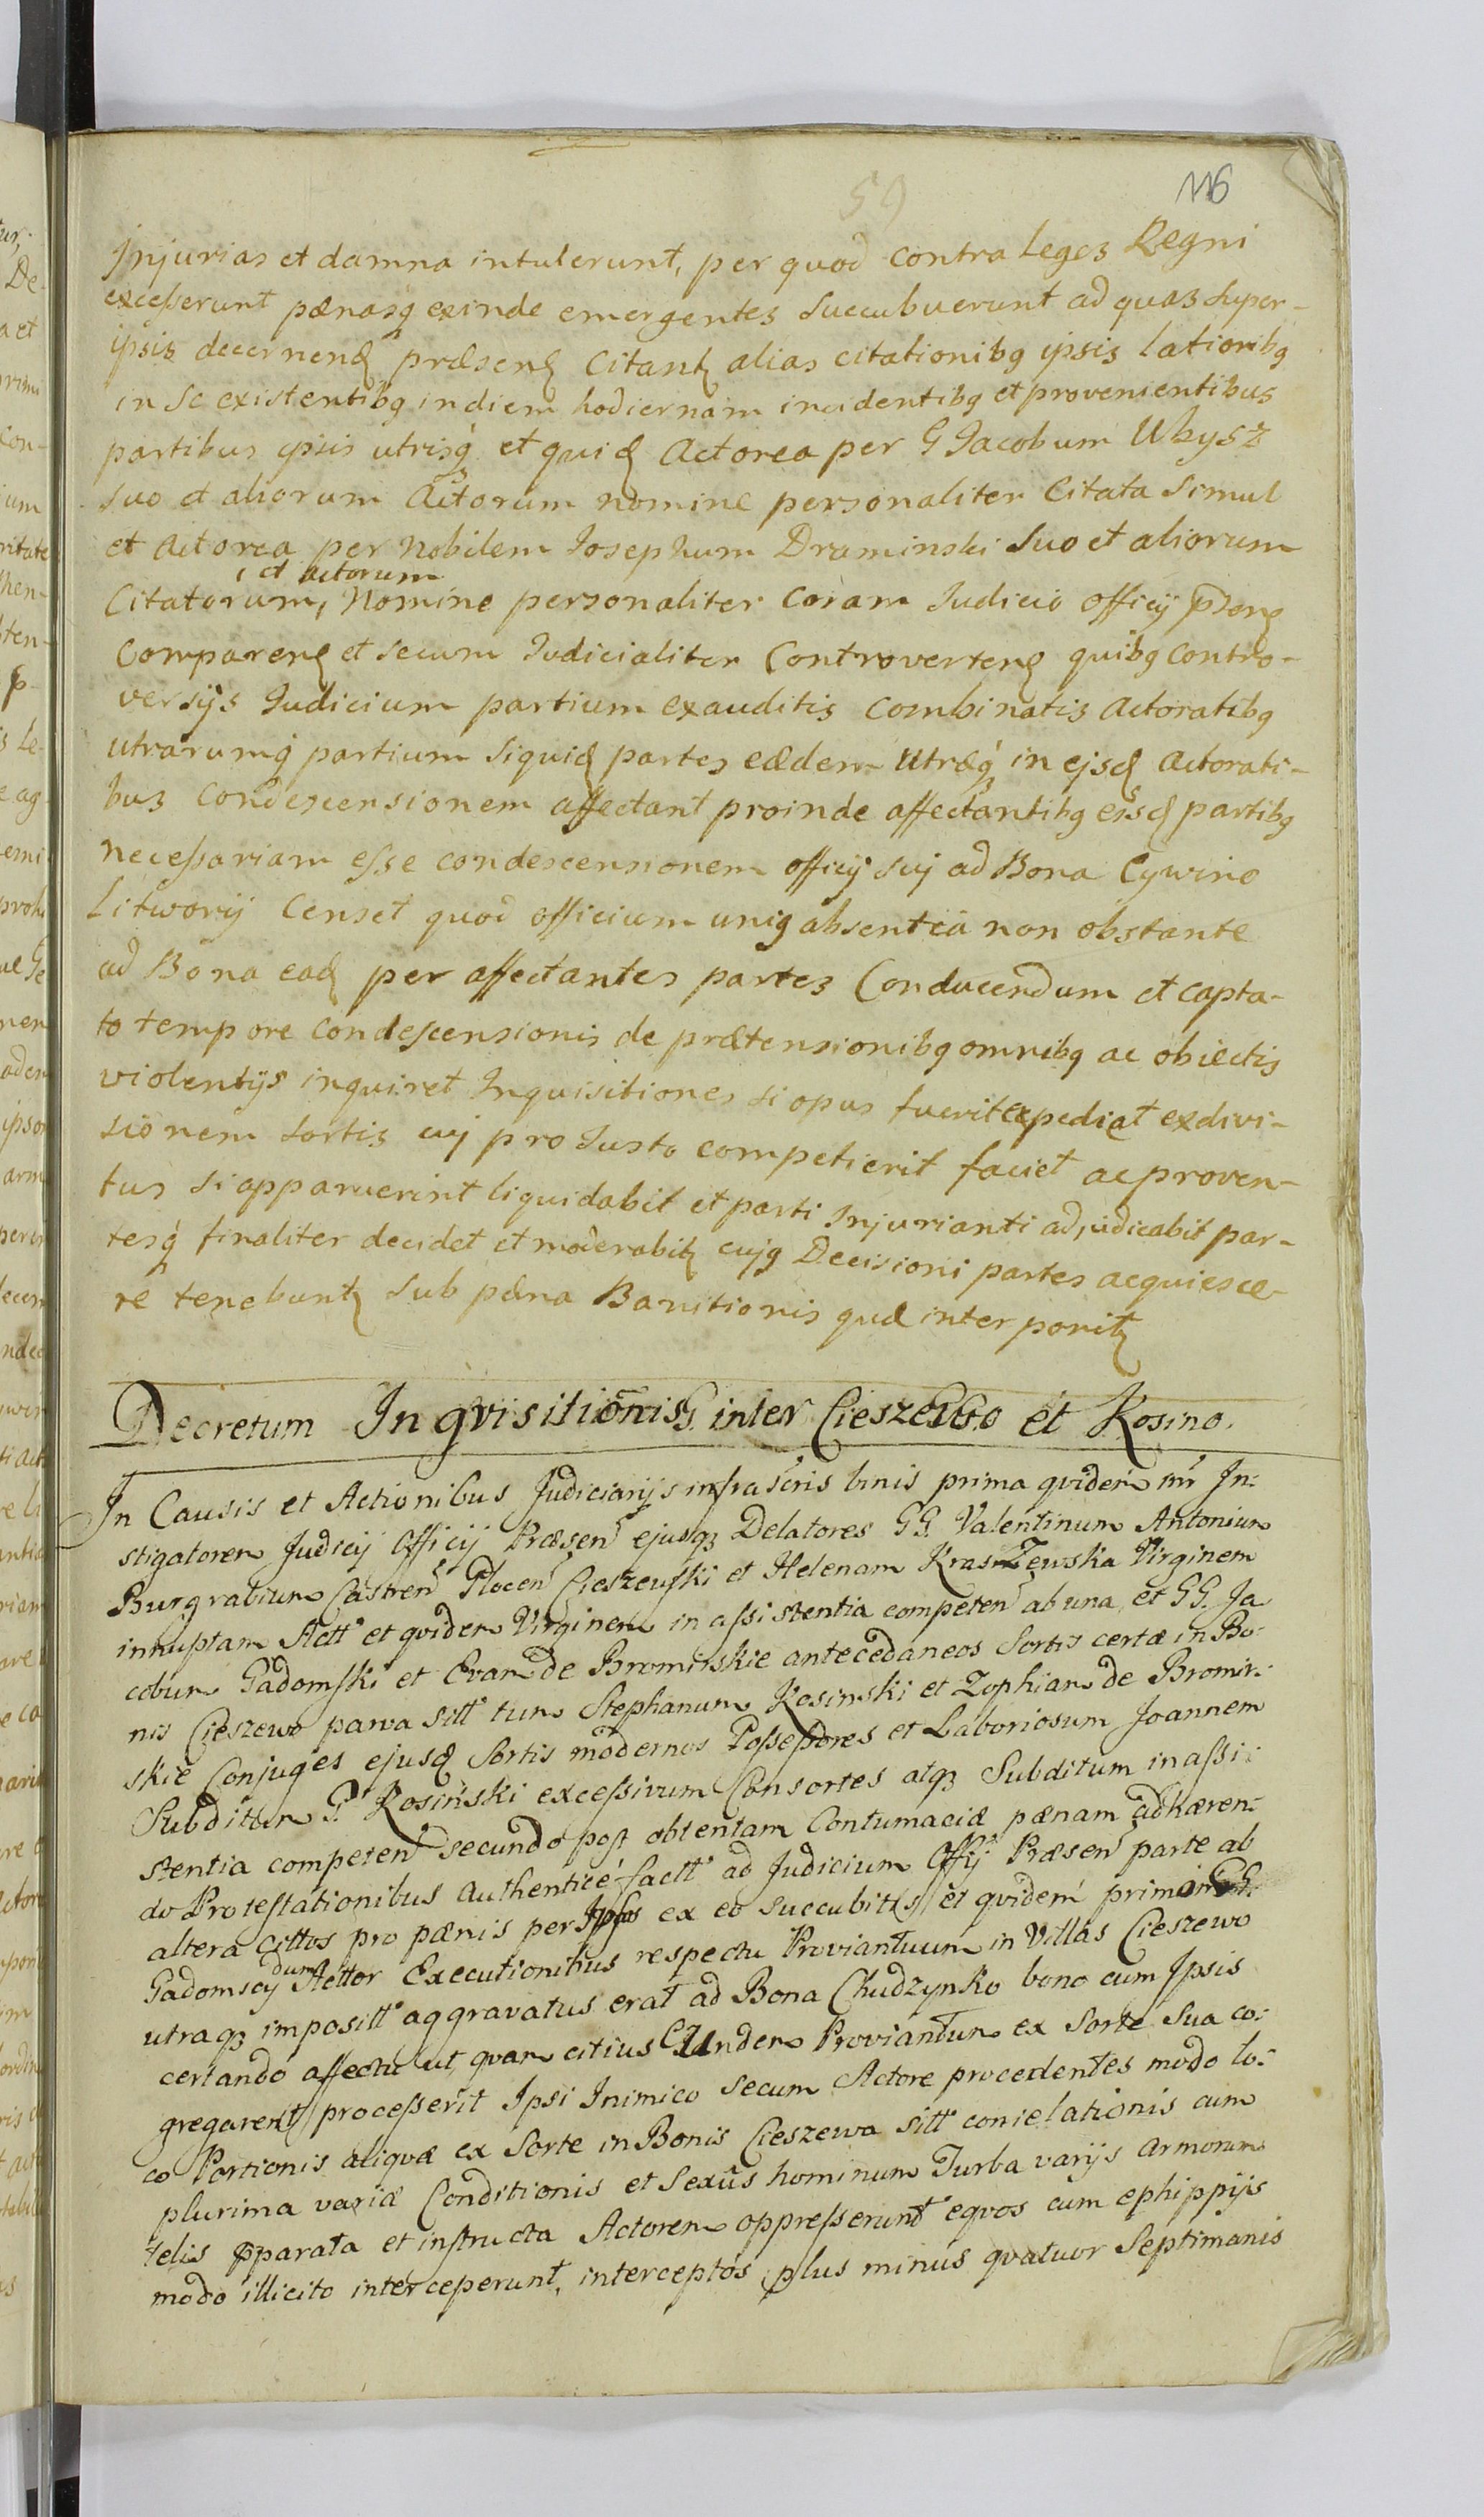 59
116
Injurias et damna intulerunt, per quod contra Leges Regni
excesserunt pænasq exinde emergentes succubuerunt ad quas super-
ipsis decernenꝺ præsenꝺ Citant alias citationibq ipsis latioribq
in se existentibq in diem hodiernam incidentibq et provenientibus
partibus ipsis utrisq et quiꝺ Actorea per G Jacobum
suo et aliorum Actorum nomine personaliter Citata simul
et Actorea per Nobilem Josephum Draminski suo et aliorum
et actorum
Citatorum, Nomine personaliter coram Judicio Officij
Comparenꝺ et secum Judicialiter Controvertenꝺ quibq contro-
versijs Judicium partium exauditis combinatis Actoratibq
utrarumq partium siquiꝺ partes eædem utræq in ejsꝺ Actorati-
bus condescensionem affectant proinde affectantibq eisꝺ partibq
necessariam esse condescensionem officij suj ad Bona Cywino
Litworij Censet quod officium uniq absentia non obstante
ad Bona eaꝺ per affectantes partes Conducendum et capta-
to tempore condescensionis de prætensionibq omnibq ac obiectis
violentijs inquiret Inquisitiones si opus fuerit expediat exdivi-
sionem sortis cuj pro Justo competierit faciet ac proven-
tus si apparuerint liquidabit et parti Injurianti adjudicabit par-
tesq finaliter decidet et moderabit cujq Decisioni partes acquiesce-
re tenebunt sub pæna Banitionis quæ inter ponit
Decretum Inqvisitionis G. inter Cieszewo et Kosino.
In Causis et Actionibus Judiciarijs infrascris binis prima qvidem In-
stigatorem Judicij Officij Præsen ejusqȝ Delatores GG. Valentinum Antonium
Burgrabium Castren Plocen Cieszewski et Helenam Kraszewska Virginem
innuptam Actt et qvidem Virginem in assistentia competen ab una, et GG. Ja
cobum Gadomski et Evam de Bromirskie antecedaneos Sortis certæ in Bo-
nis Cieszewo parva sitt tum Stephanum Kosinski et Zophiam de Bromir-
skie Conjuges ejusꝺ Sortis modernos Possessores et Laboriosum Joannem
Subditum G. Kosinski excessivum Consortes atqȝ Subditum in assi-
stentia competen secundo post obtentam Contumaciæ pænam adhæren-
do Protestationibus authenticè factt ad Judicium Offij Præsen parte ab
altera cittos pro pænis per Ipsos ex eo succubitis et qvidem primo GG.
Gadomscij dum Acttor Executionibus respectu Proviantuum in Villas Cieszewo
utraqȝ impositt aggravatus erat ad Bona Chudzynko bono cum Ipsis
certando affectu ut qvam citius Eundem Proviantum ex Sorte Sua co-
gregarent processerit Ipsi Inimico secum Actore procedentes modo lo-
co Portionis aliqvæ ex Sorte in Bonis Cieszewa sitt cum
plurima variæ Conditionis et Sexûs hominum Turba varijs armorum
telis apparata et instructa Actorem oppresserunt eqvos cum ephippijs
modo illicito interceperunt, interceptos plus minus qvatuor Septimanis